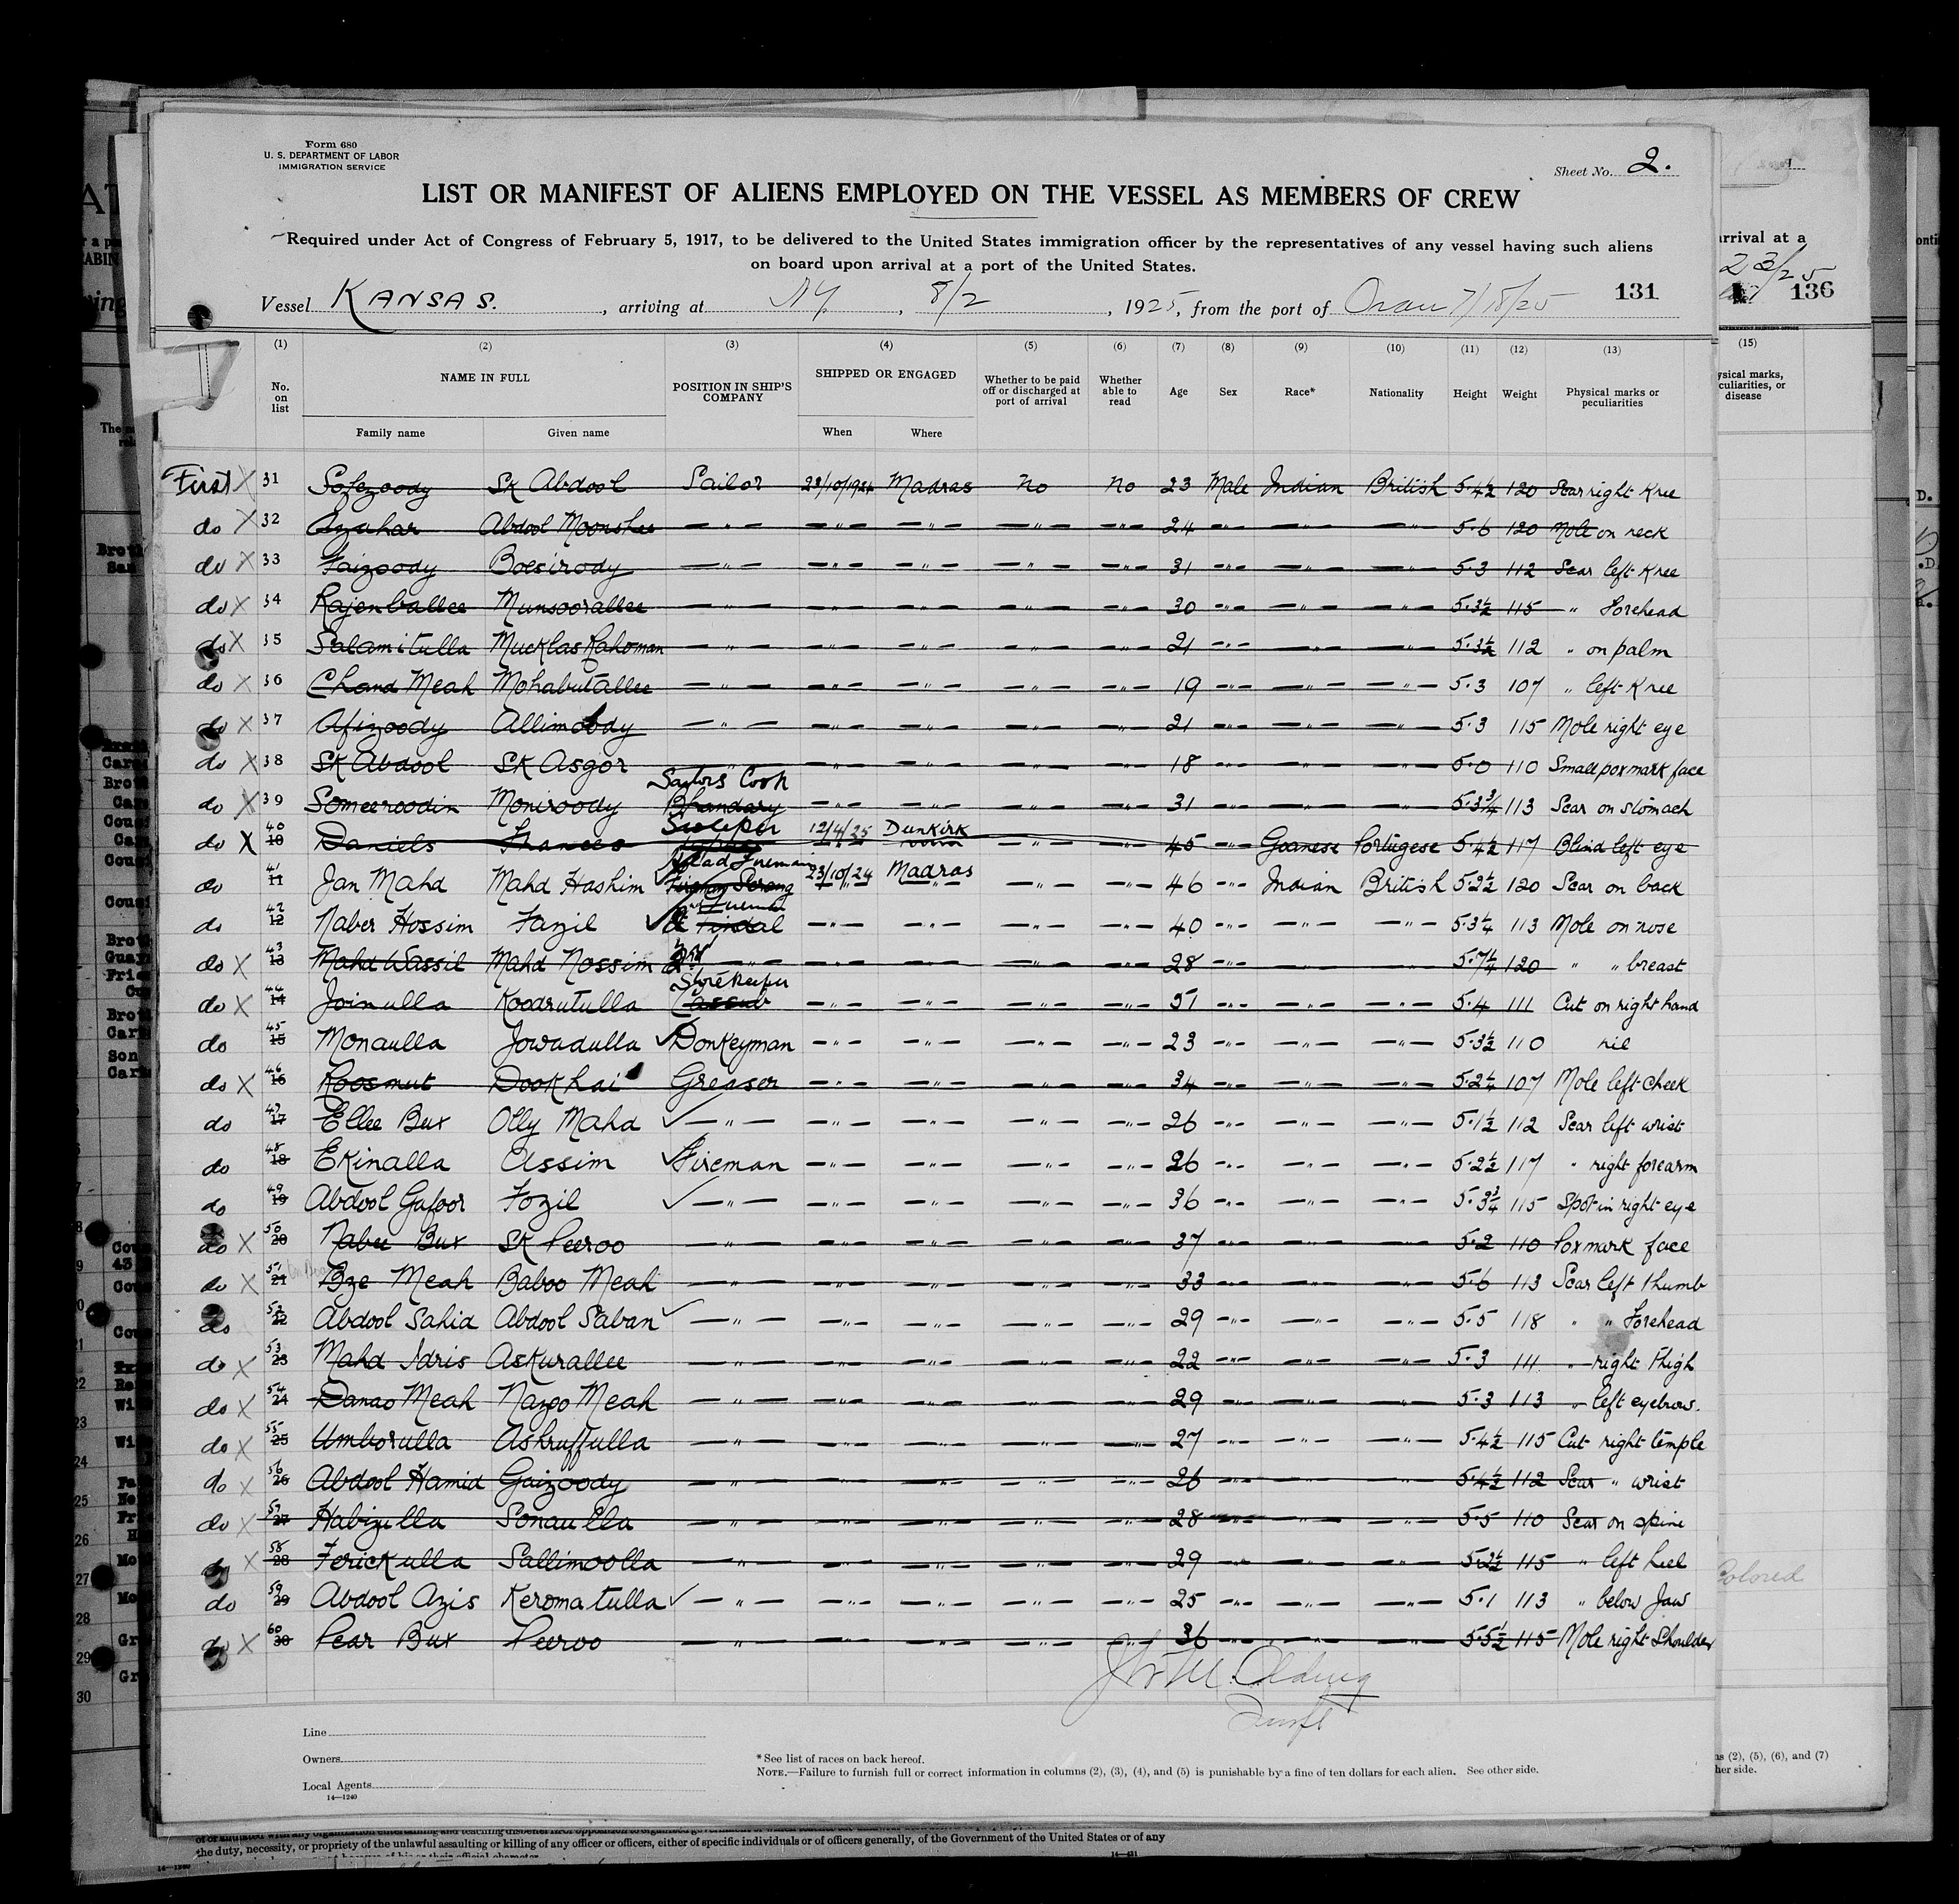 Form 680
U. S. DEPARTMENT OF LABOR
IMMIGRATION SERVICE
Sheet No. 2.
LIST OR MANIFEST OF ALIENS EMPLOYED ON THE VESSEL AS MEMBERS OF CREW
Required under Act of Congress of February 5, 1917, to be delivered to the United States immigration officer by the representatives of any vessel having such aliens
on board upon arrival at a port of the United States.
Vessel KANSAS. , arriving at NY. , 8/2 , 1925, from the port of Oran 7/18/25 131
136
(1) (2) (3) (4) (5) (6) (7) (8) (9) (10) (11) (12) (13)
No. on list NAME IN FULL POSITION IN SHIP'S COMPANY SHIPPED OR ENGAGED Whether to be paid off or discharged at port of arrival Whether able to read Age Sex Race* Nationality Height Weight Physical marks or peculiarities
Family name Given name When Where
First X 31 Sofezoody SK Abdool Sailor 23/10/1924 Madras No No 23 Male Indian British 5.4½ 120 Scar right Knee
do X 32 Azahar Abdool Moonshee — " — — " — — " — — " — — " — 24 — " — — " — — " — 5.6 120 Mole on neck
do X 33 Faizoody Boesirody — " — — " — — " — — " — — " — 31 — " — — " — — " — 5.3 112 Scar left Knee
do X 34 Rajenballee Munsoorallee — " — — " — — " — — " — — " — 30 — " — — " — — " — 5.3½ 115 " Forehead
do X 35 Salamitulla Mucklas Rahoman — " — — " — — " — — " — — " — 21 — " — — " — — " — 5.3½ 112 " on palm
do X 36 Chand Meah Mohabutallee — " — — " — — " — — " — — " — 19 — " — — " — — " — 5.3 107 " left Knee
do X 37 Afizoody Allimoody — " — — " — — " — — " — — " — 21 — " — — " — — " — 5.3 115 Mole right eye
do X 38 SK Abdool SK Asgor — " — — " — — " — — " — 18 — " — — " — — " — 5.0 110 Small pox mark face
do X 39 Someeroodin Moniroody Sailors Cook Bhandary — " — — " — — " — — " — 31 — " — — " — — " — 5.3¾ 113 Scar on stomach
do X 40 10 Daniels Frances 12/4/25 Dunkirk — " — — " — 45 — " — Goanese Portugese 5.4½ 117 Blind left eye
do 41 11 Jan Mahd Mahd Hashim Head Fireman Fireman Serang 23/10/24 Madras — " — — " — 46 — " — Indian British 5.2½ 120 Scar on back
do 42 12 Naber Hossim Fazil Tindal — " — — " — — " — — " — 40 — " — — " — — " — 5.3¼ 113 Mole on nose
do X 43 13 Mahd Wassil Mahd Nossim 2nd — " — — " — — " — — " — — " — 28 — " — — " — — " — 5.7¼ 120 " " breast
do X 44 14 Joinulla Koodrutulla Storekeeper Cassub — " — — " — — " — — " — 51 — " — — " — — " — 5.4 111 Cut on right hand
do 45 15 Monaulla Jowadulla Donkeyman — " — — " — — " — — " — 23 — " — — " — — " — 5.3½ 110 nil
do X 46 16 Koosmut Dookhai Greaser — " — — " — — " — — " — 34 — " — — " — — " — 5.2¼ 107 Mole left cheek
do 47 17 Ellee Bux Olly Mahd — " — — " — — " — — " — — " — 26 — " — — " — — " — 5.1½ 112 Scar left wrist
do 48 18 Ekinalla Assim Fireman — " — — " — — " — — " — 26 — " — — " — — " — 5.2½ 117 " right forearm
do 49 19 Abdool Gafoor Fozil — " — — " — — " — — " — — " — 36 — " — — " — — " — 5.3¾ 115 Spot in right eye
do X 50 20 Nabee Bux SK Peeroo — " — — " — — " — — " — — " — 37 — " — — " — — " — 5.2 110 Pox mark face
do X 51 21 Bze Meah Baboo Meah — " — — " — — " — — " — — " — 33 — " — — " — — " — 5.6 113 Scar left thumb
do 52 22 Abdool Sahid Abdool Saban — " — — " — — " — — " — — " — 29 — " — — " — — " — 5.5 118 " " Forehead
do X 53 23 Mahd Idris Askurallee — " — — " — — " — — " — — " — 22 — " — — " — — " — 5.3 111 " right thigh
do X 54 24 Danao Meah Nazoo Meah — " — — " — — " — — " — — " — 29 — " — — " — — " — 5.3 113 " left eyebrow.
do X 55 25 Umborulla Ashruffulla — " — — " — — " — — " — — " — 27 — " — — " — — " — 5.4½ 115 Cut right temple
do X 56 26 Abdool Hamid Gaizoody — " — — " — — " — — " — — " — 26 — " — — " — — " — 5.4½ 112 Scar " wrist
do X 57 27 Habizulla Sonaulla — " — — " — — " — — " — — " — 28 — " — — " — — " — 5.5 110 Scar on spine
do X 58 28 Ferickulla Sallimoolla — " — — " — — " — — " — — " — 29 — " — — " — — " — 5.2½ 115 " left heel
do 59 29 Abdool Azis Keromatulla — " — — " — — " — — " — — " — 25 — " — — " — — " — 5.1 113 " below Jaw
do X 60 30 Pear Bux Peeroo — " — — " — — " — — " — — " — 36 — " — — " — — " — 5.5½ 115 Mole right Shoulder
Line
Owners
Local Agents
14—1240
* See list of races on back hereof.
NOTE.—Failure to furnish full or correct information in columns (2), (3), (4), and (5) is punishable by a fine of ten dollars for each alien. See other side.
arrival at a
(15)
disease
Colored
(2), (5), (6), and (7)
her side.
the duty, necessity, or propriety of the unlawful assaulting or killing of any officer or officers, either of specific individuals or of officers generally, of the Government of the United States or of any